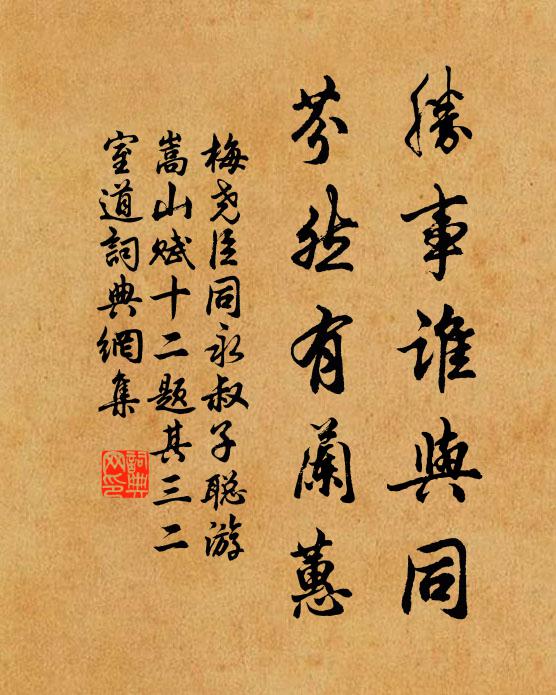 勝事誰與同
芬然有蘭蕙
梅尧臣同永叔子聪游
嵩山赋十二题其三二
室道詞典網集
詞典
网印